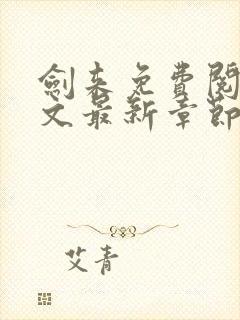 劍來免費閱
文最新章節
艾青